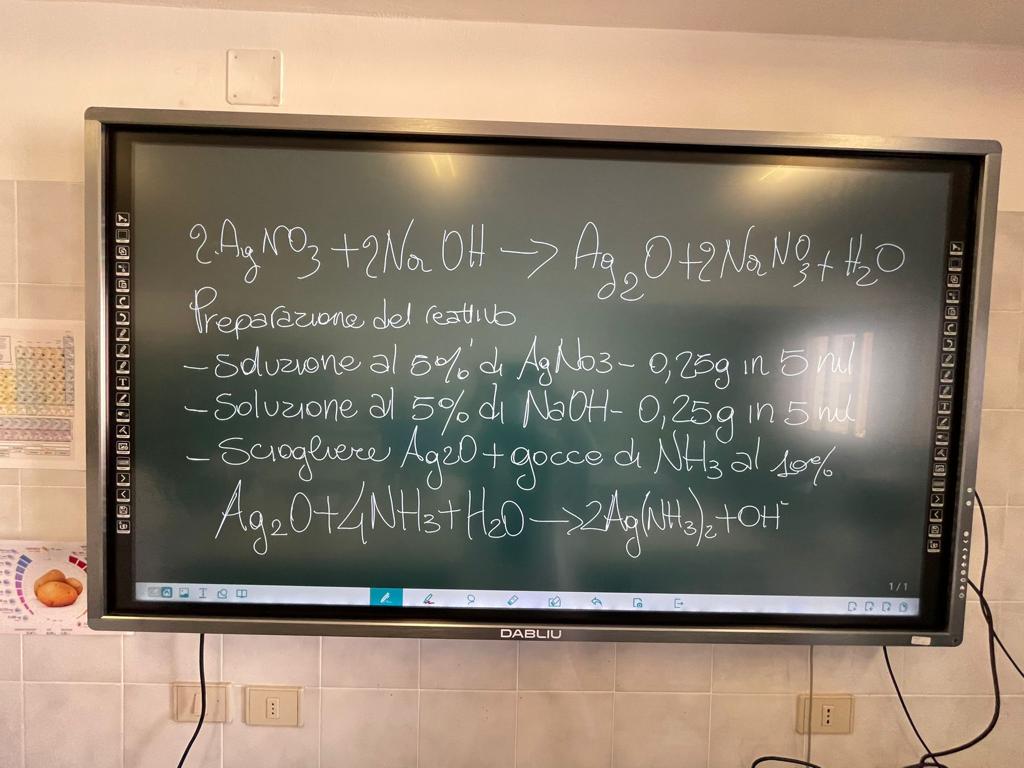 2AgNO3 + 2NaOH → Ag2O + 2NaNO3 + H2O
Preparazione del reattivo
- Soluzione al 5% di AgNo3 - 0,25g in 5 ml
- Soluzione al 5% di NaOH - 0,25g in 5 ml
- Sciogliere Ag2O + gocce di NH3 al 10%
Ag2O + 4NH3 + H2O → 2Ag(NH3)2 + OH-
1/1
DABLIU